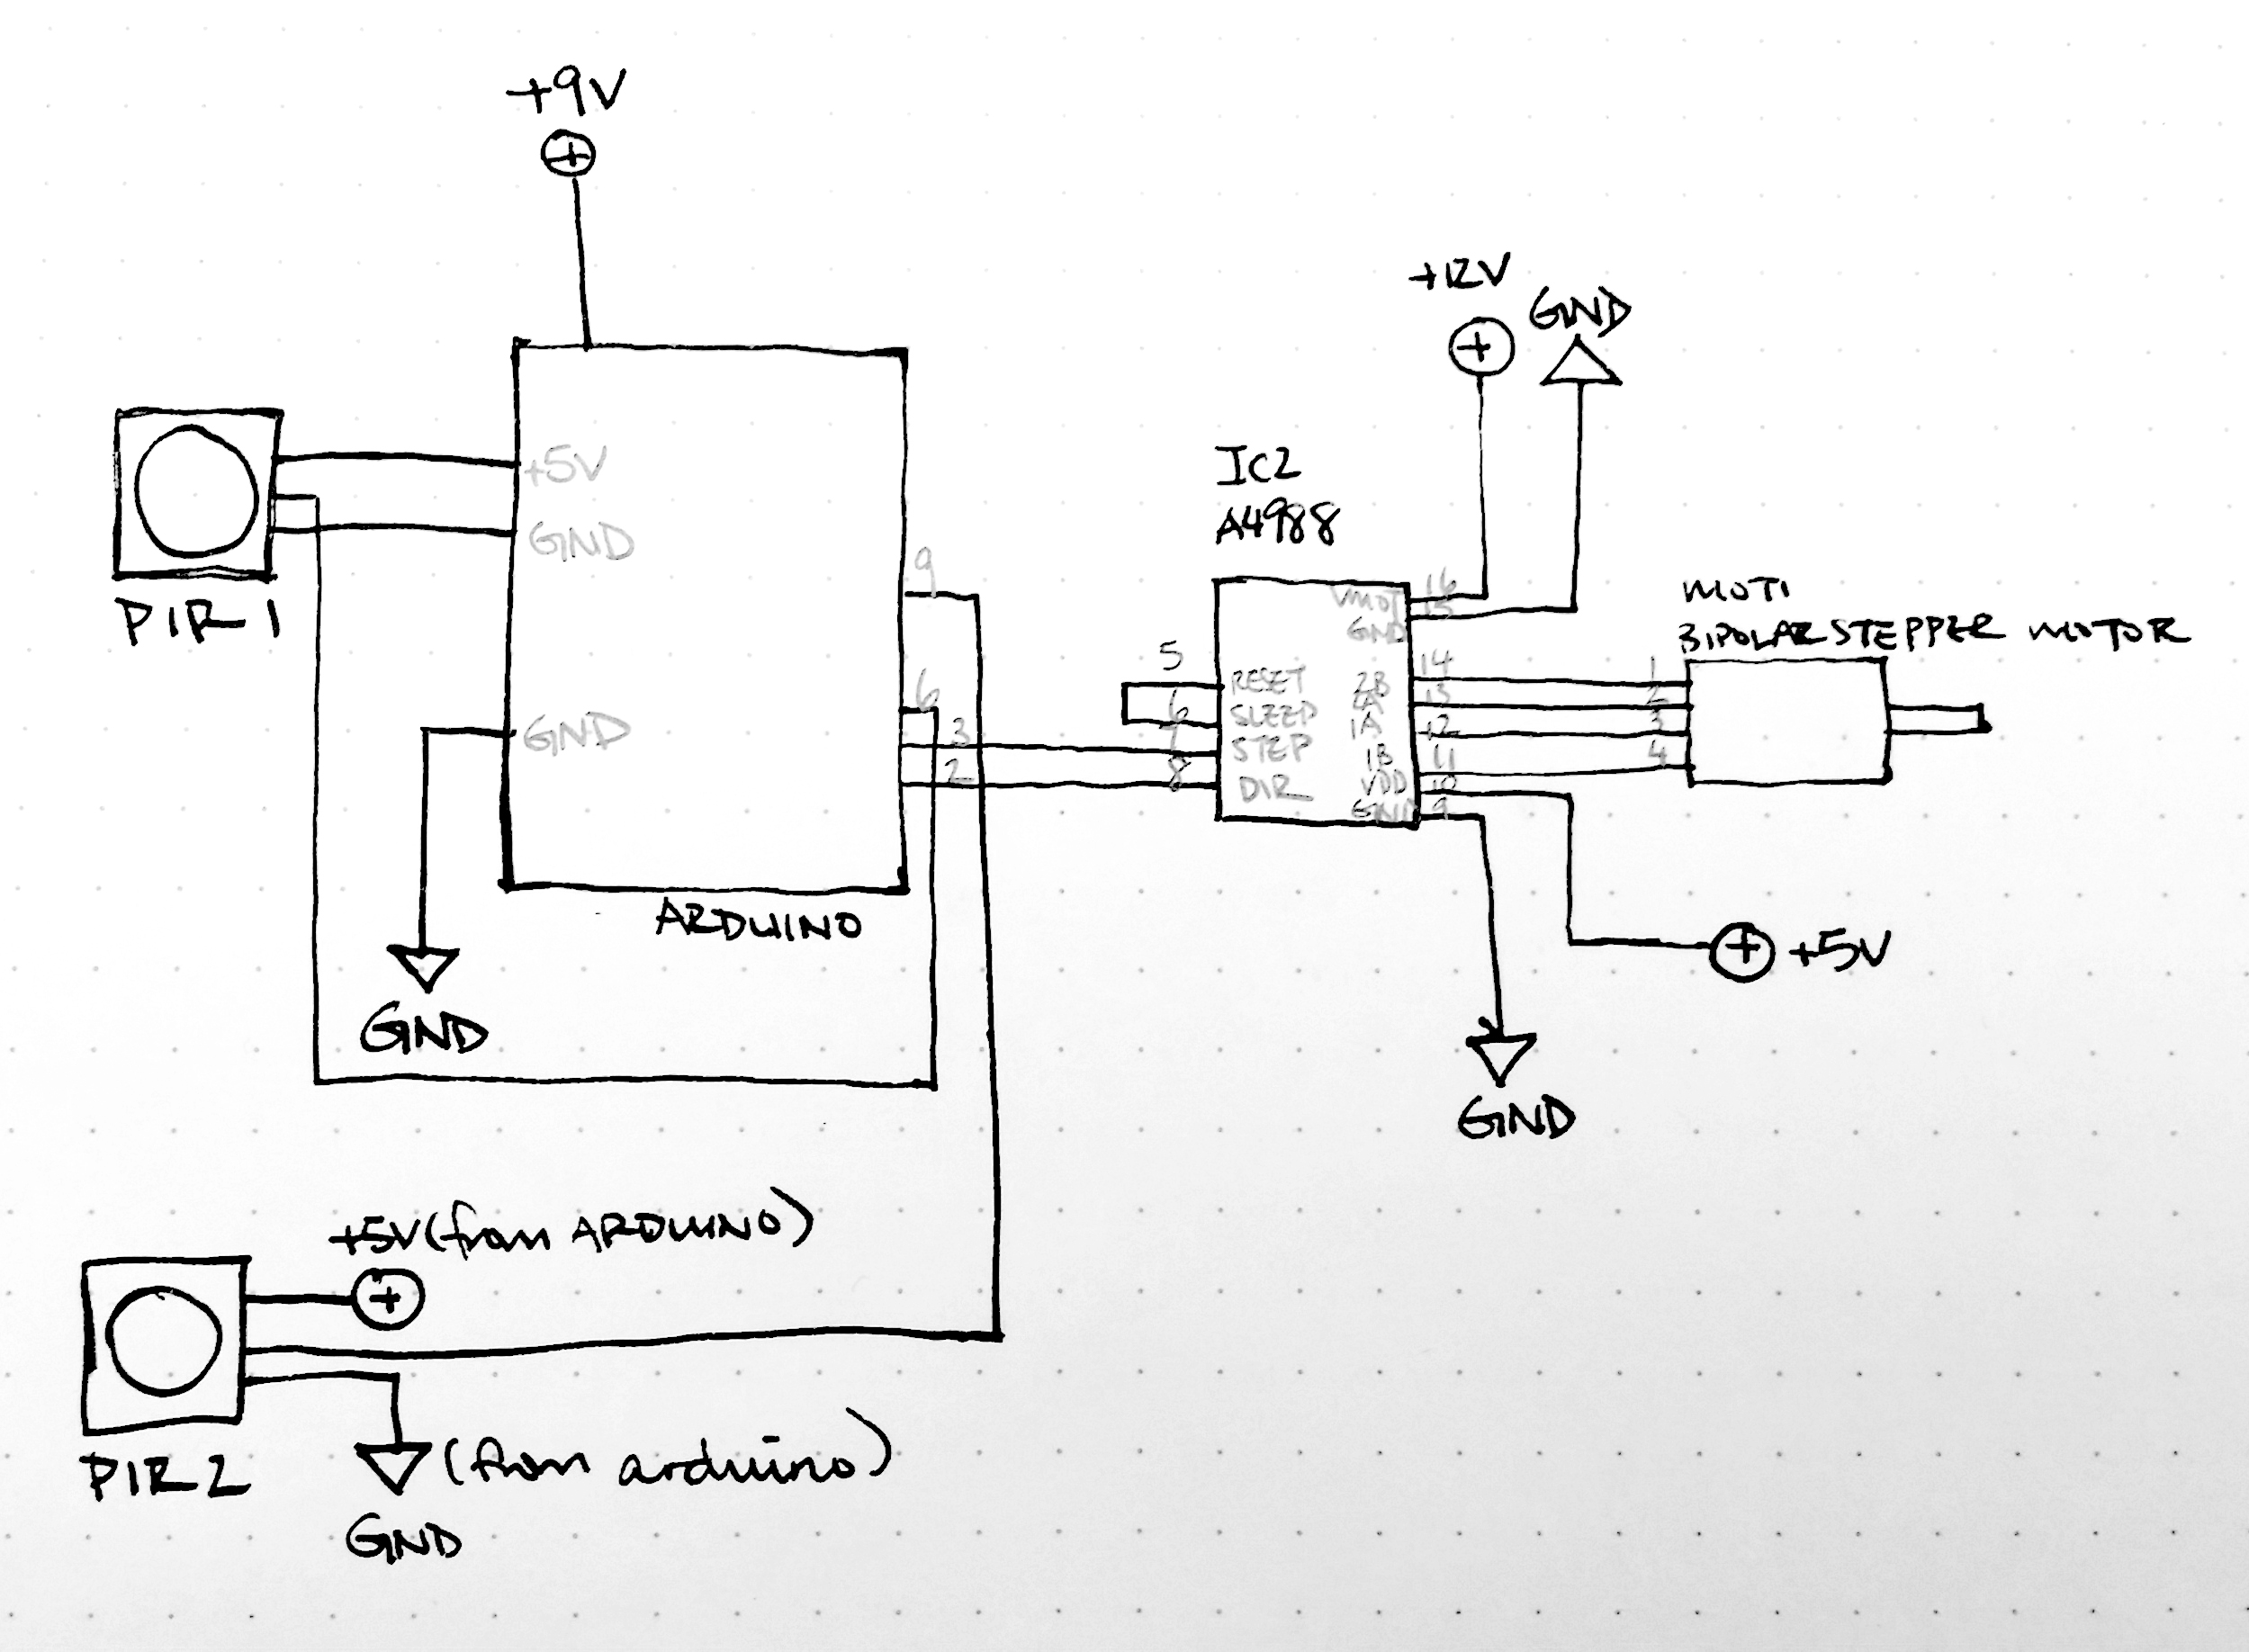 +9V
+12V
GND
+5V
GND
PIR 1
IC2
A4988
9
6
3
2
GND
ARDUINO
GND
5
6
7
8
RESET
SLEEP
STEP
DIR
VMOT
GND
2B
2A
1A
1B
VDD
GND
16
15
14
13
12
11
10
9
MOT1
BIPOLAR STEPPER MOTOR
1
2
3
4
+5V
GND
+5V (from ARDUINO)
PIR 2
(from arduino)
GND